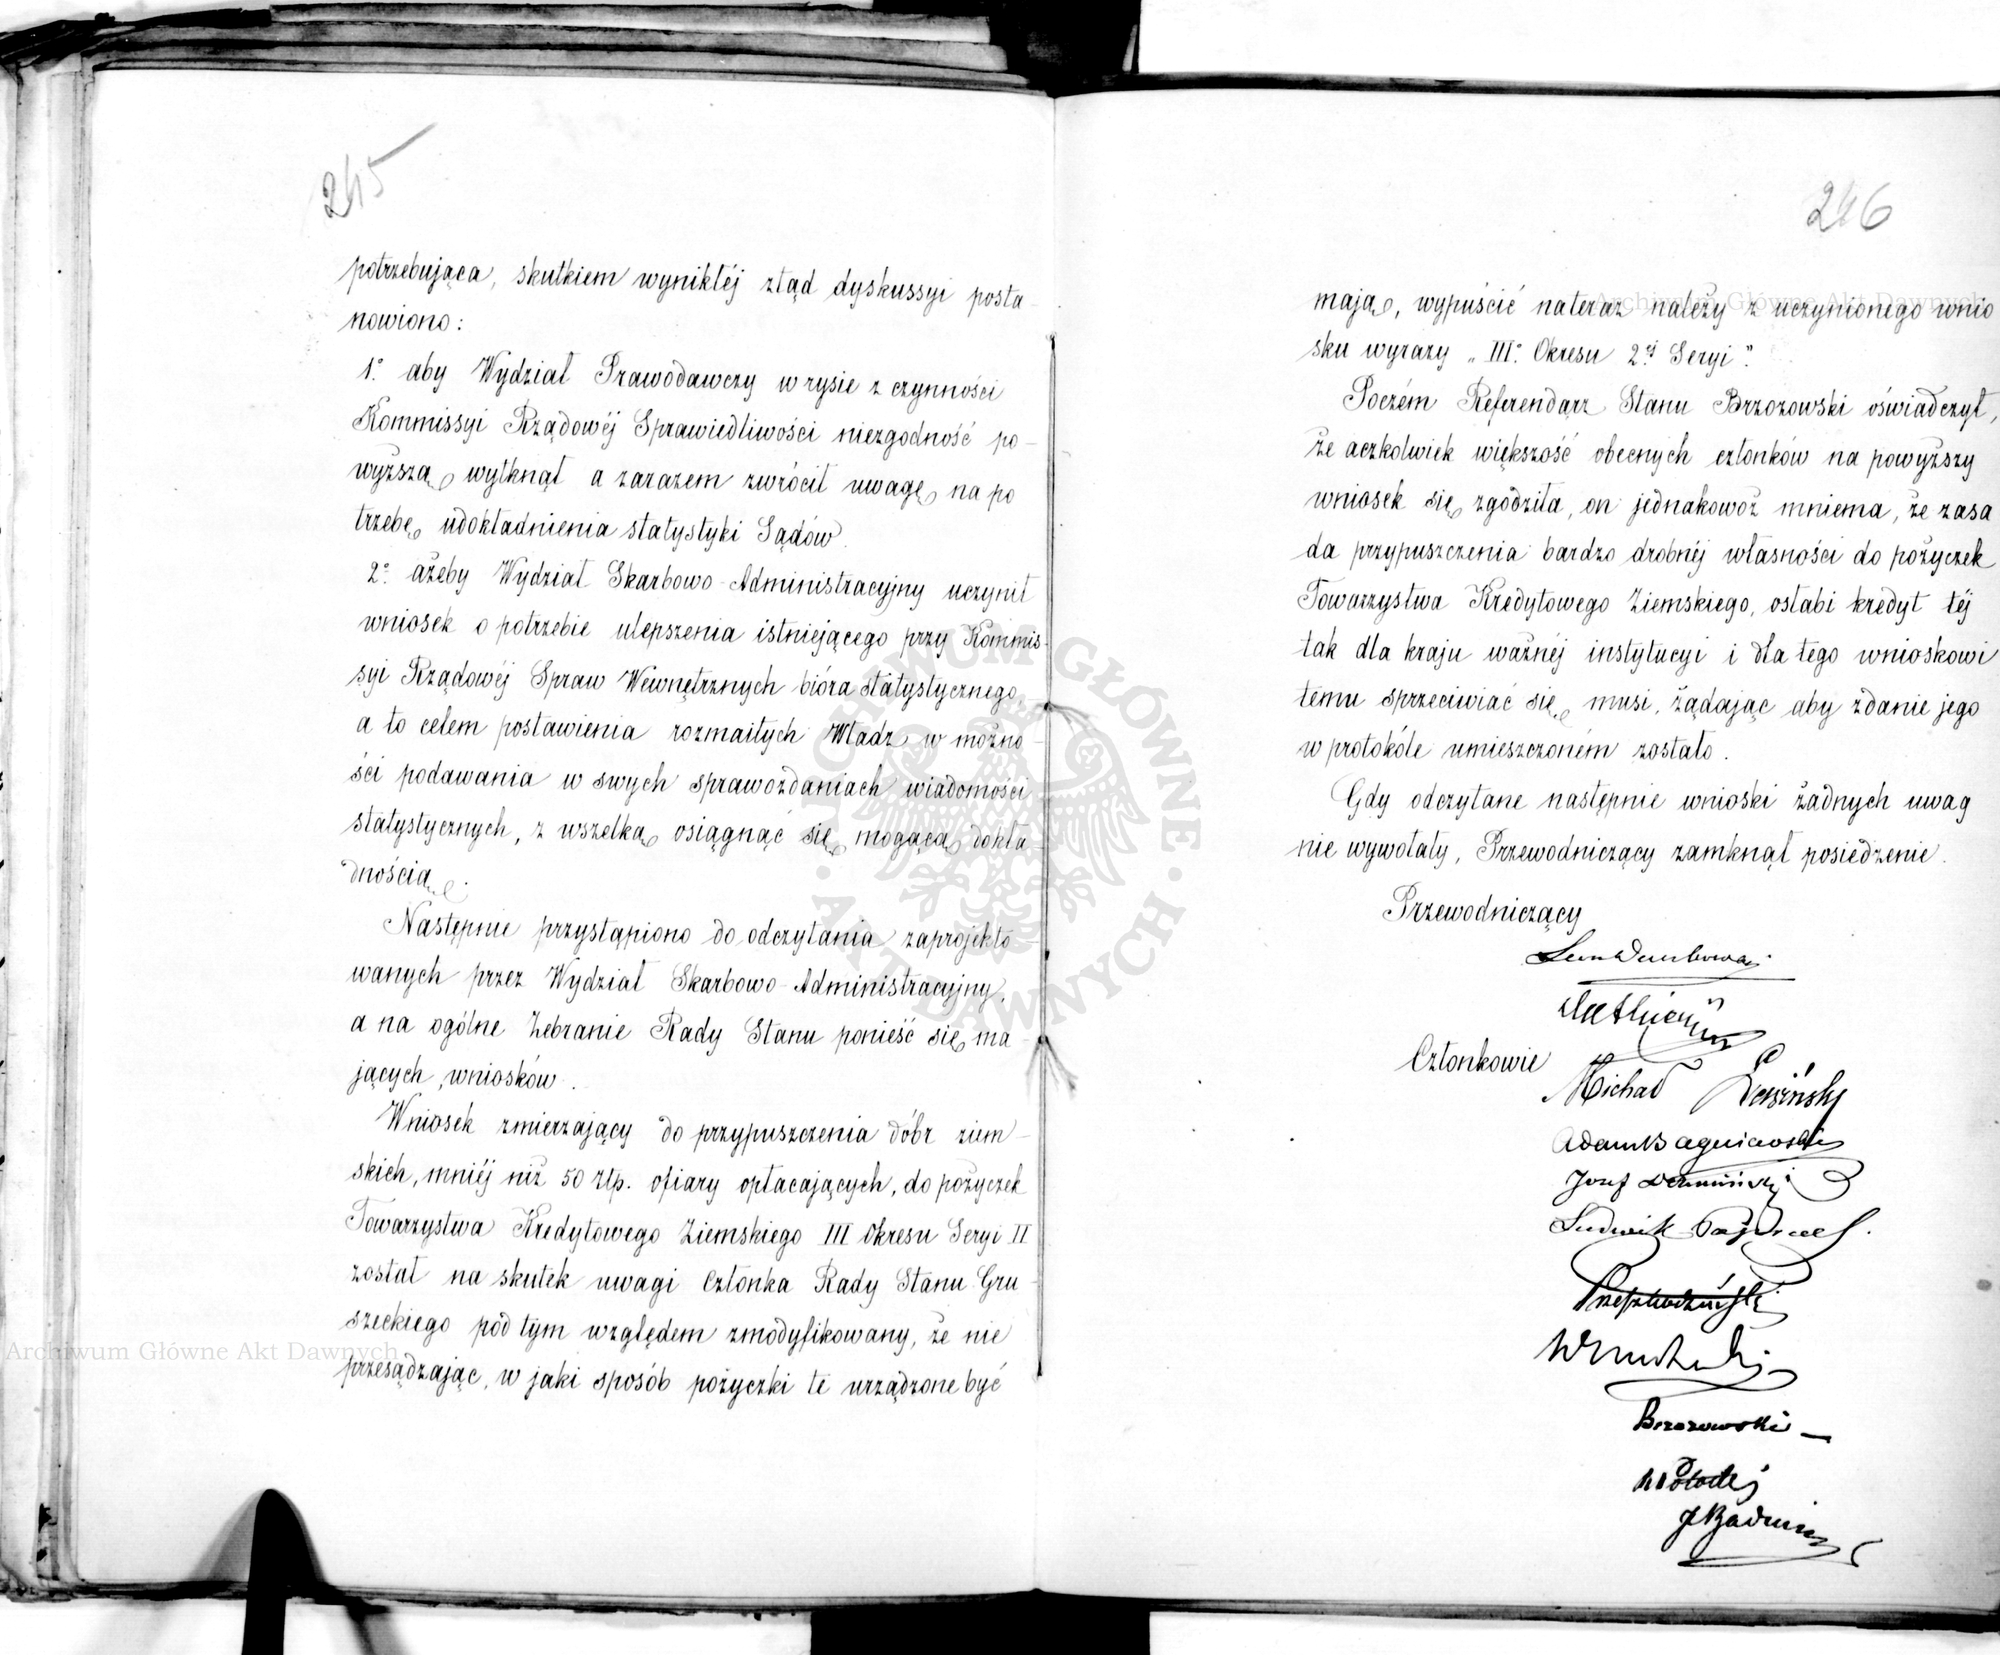 245
potrzebująca, skutkiem wynikłéj ztąd dyskussyi posta-
nowiono:
1º aby Wydział Prawodawczy w rysie z czynności
Kommissyi Rządowéj Sprawiedliwości niezgodność po-
wyższą wytknął a zarazem zwrócił uwagę na po
trzebę udokładnienia statystyki Sądów.
2º ażeby Wydział Skarbowo-Administracyjny uczynił
wniosek o potrzebie ulepszenia istniejącego przy Kommis-
syi Rządowéj Spraw Wewnętrznych bióra statystycznego,
a to celem postawienia rozmaitych Władz w możno-
ści podawania w swych sprawozdaniach wiadomości
statystycznych, z wszelką osiągnąć się mogącą dokła-
dnością.
Następnie przystąpiono do odczytania zaprojekto-
wanych przez Wydział Skarbowo-Administracyjny,
a na ogólne Zebranie Rady Stanu ponieść się ma-
jących, wniosków.
Wniosek zmierzający do przypuszczenia dóbr ziem-
skich, mniéj niż 50 złp. ofiary opłacających, do pożyczek
Towarzystwa Kredytowego Ziemskiego III Okresu Seryi II
został na skutek uwagi Członka Rady Stanu Gru-
szeckiego pod tym względem zmodyfikowany, że nie
przesądzając, w jaki sposób pożyczki te urządzone być
246
mają, wypuścić na teraz należy z uczynionego wnio
sku wyrazy „III° Okresu 2éj Seryi".
Poczém Referendarz Stanu Brzozowski oświadczył,
że aczkolwiek większość obecnych członków na powyższy
wniosek się zgodziła, on jednakowoż mniema, że zasa
da przypuszczenia bardzo drobnéj własności do pożyczek
Towarzystwa Kredytowego Ziemskiego, osłabi kredyt téj
tak dla kraju ważnéj instytucyi i dla tego wnioskowi
temu sprzeciwiać się musi, żądając aby zdanie jego
w protokóle umieszczoném zostało.
Gdy odczytane następnie wnioski żadnych uwag
nie wywołały, Przewodniczący zamknął posiedzenie.
Przewodniczący
Członkowie
Michał
Adam Bagniewski
Józef
Ludwik
Brzozowski
Archiwum Główne Akt Dawnych
Archiwum Główne Akt Dawnych
ARCHIWUM GŁÓWNE AKT DAWNYCH